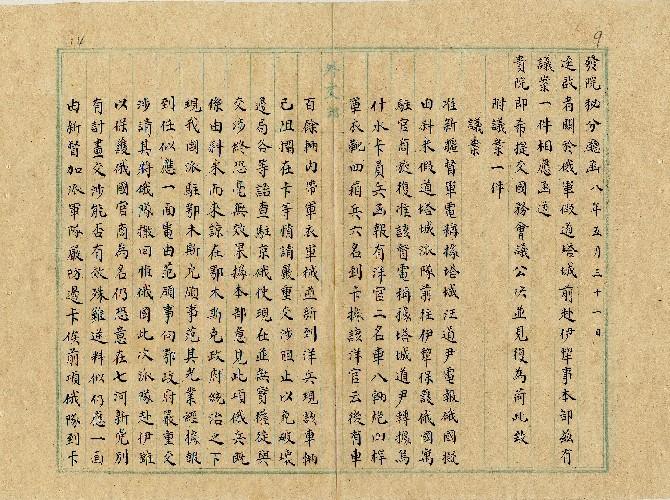 9
14
外交部
發院秘分廳函八年五月三十一日
逕啟者關於俄軍假道塔城前赴伊犂事本部茲有
議案一件相應函送
貴院即希提交國務會議公決並見復為荷此致
附議案一件
議案
准新疆督軍電稱據塔城汪道尹電報俄國擬
由斜米假道塔城派隊前往伊犂保護俄國寓
駐官商茲復准該督電稱據塔城道尹轉據葦
什水卡員兵函報有洋官二名車八輛炮四桿
軍衣靴四箱兵六名到卡據該洋官云後有車
百餘輛內帶軍衣軍械並新到洋兵現該車輛
已阻擋在卡等情請嚴重交涉阻止以免破壞
邊局各等語查駐京俄使現在並無實權徒與
交涉終恐毫無效果據本部意見此項俄兵既
係由斜米而來諒在鄂木斯克政府統治之下
現我國派駐鄂木斯克領事范其光業經據報
到任似應一面電由范領事向鄂政府嚴重交
涉請其將俄隊撤回惟俄國此次派隊赴伊雖
以保護俄國官商為名仍恐意在七河新黨別
有計畫交涉能否有效殊難逆料似仍應一面
由新督加派軍隊嚴防邊卡俟前項俄隊到卡